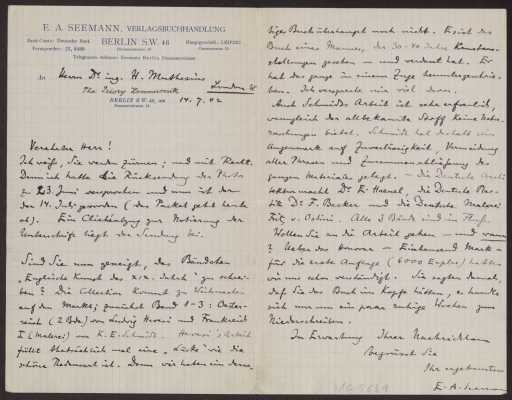 E. A. SEEMANN, VERLAGSBUCHHANDLUNG
Bank-Conto: Deutsche Bank
Fernsprecher:
BERLIN S.W. 46
Hauptgeschäft: LEIPZIG
Telegramm-Adresse: Seemann Berlin
An Herrn Dr ing. H. Muthesius
The Priory Hammersmith
London W
BERLIN S.W. 46, den
14. 7. 02
Verehrter Herr!
Ich weiß, Sie werden zürnen; und mit Recht.
Denn ich hatte die Rücksendung der Photos
z. 23. Juni versprochen und nun ist der
der 14. Juli geworden (das Packet geht heute
ab). Ein Clichéabzug zur Notierung der
Unterschrift liegt der Sendung bei.
Sind Sie nun geneigt, das Bändchen
"Englische Kunst des XIX. Jahrh." zu schrei-
ben? Die Collection kommt zu Weihnachten
auf den Markt; zunächst Band 1-3: Oester-
reich (2 Bde) von Ludwig Hevesi und Frankreich
I (Malerei) von K. E. Schmidt. Hevesi's Arbeit
füllt thatsächlich mal eine "Lücke" wie die
schöne Redensart ist. Denn wir hatten ein derar-
tiges Buch überhaupt noch nicht. Es ist das
Buch eines Mannes, der 30-40 Jahre Kunstaus-
stellungen gesehen - und verdaut hat. Er
hat das ganze in einem Zuge heruntergeschrie-
ben. Ich verspreche mir viel davon.
Auch Schmidts Arbeit ist sehr erfreulich,
wenngleich der altbekannte Stoff keine
bietet. Schmidt hat deshalb sein
Augenmerk auf Zuverlässigkeit, Vermeidung
aller Phrasen und
ganzen Materiales gelegt. - die Deutsche Archi-
tektur macht Dr E. Haenel, die Deutsche Pla-
stik Dr F. Becker und die Deutsche Malerei
Fritz v. Ostini. Alle 3 Bände sind im Fluß.
Wollen Sie an die Arbeit gehen - und wann
? Ueber das Honorar - Eintausend Mark -
für die erste Auflage (6000 Explre) hatten
wir uns schon verständigt. Sie sagten damals,
daß Sie das Buch im Kopfe hätten, es handle
sich nur um ein paar ruhige Wochen zum
Niederschreiben.
In Erwartung Ihrer Nachrichten
begrüsst Sie
Ihr ergebenster
E. A. Seemann